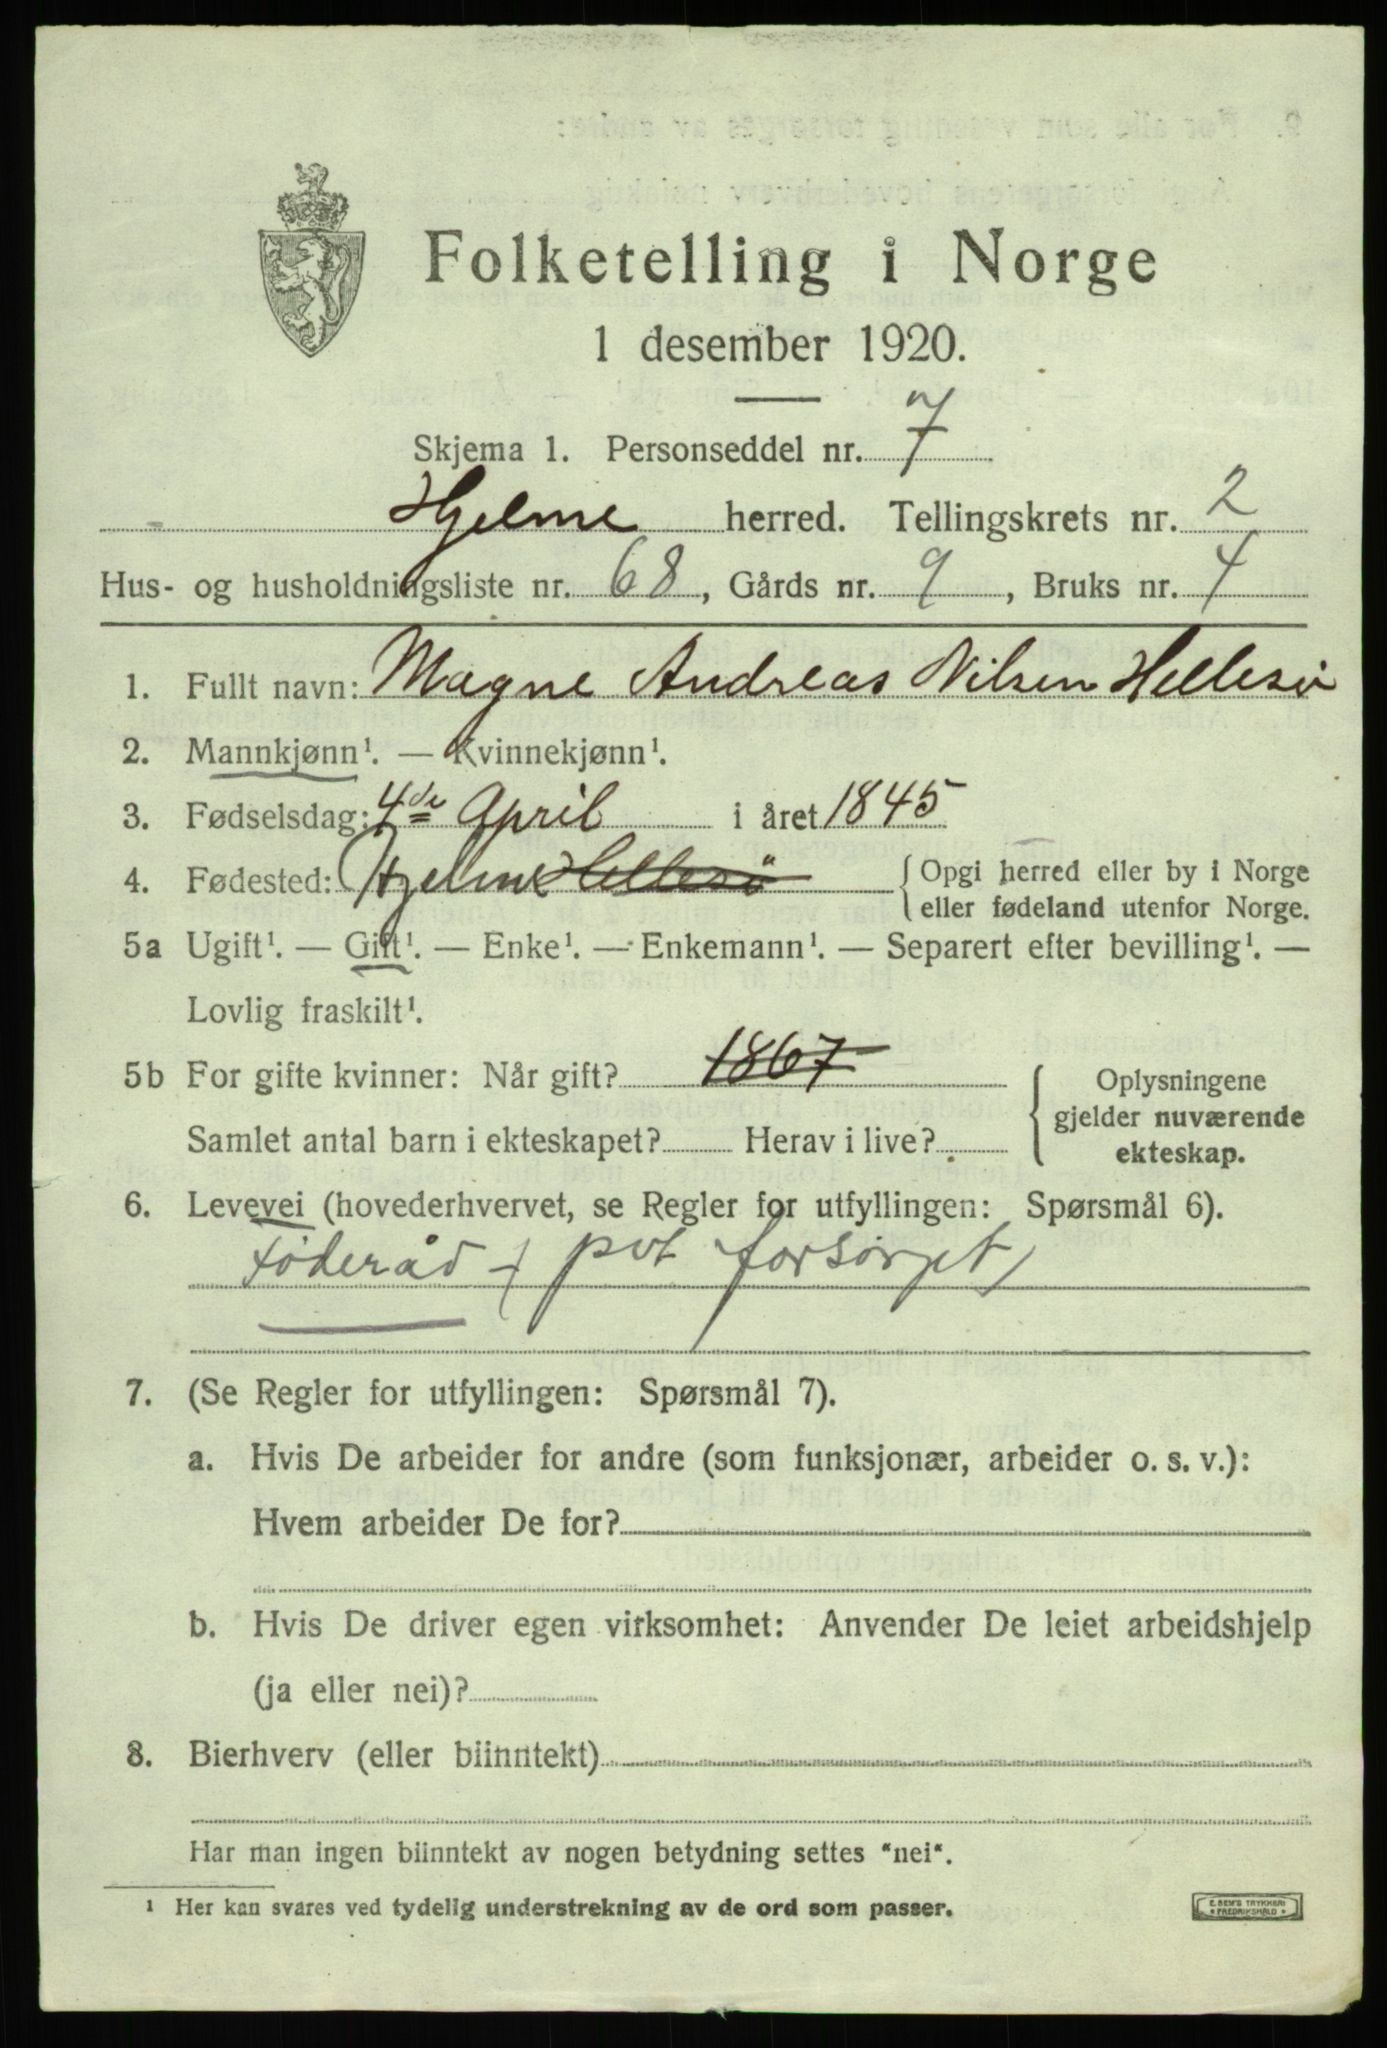 Folketelling i Norge
1 desember 1920.
Skjema 1. Personseddel nr. 7
Hjelme herred. Tellingskrets nr. 2
Hus- og husholdningsliste nr. 68, Gårds nr. 9, Bruks nr. 4
1. Fullt navn: Magne Andreas Nilsen Hellesö
2. Mannkjønn¹. — Kvinnekjønn¹.
3. Fødselsdag: 4de April i året 1845
4. Fødested: Hjelme Hellesö { Opgi herred eller by i Norge
eller fødeland utenfor Norge.
5a Ugift¹. — Gift¹. — Enke¹. — Enkemann¹. — Separert efter bevilling¹. —
Lovlig fraskilt¹.
5b For gifte kvinner: Når gift? 1867
Samlet antal barn i ekteskapet? Herav i live?
{ Oplysningene
gjelder nuværende
ekteskap.
6. Levevei (hovederhvervet, se Regler for utfyllingen: Spørsmål 6).
Föderåd - ( pvt forsörget )
7. (Se Regler for utfyllingen: Spørsmål 7).
a. Hvis De arbeider for andre (som funksjonær, arbeider o. s. v.):
Hvem arbeider De for?
b. Hvis De driver egen virksomhet: Anvender De leiet arbeidshjelp
(ja eller nei)?
8. Bierhverv (eller biinntekt)
Har man ingen biinntekt av nogen betydning settes "nei".
¹ Her kan svares ved tydelig understrekning av de ord som passer.
E. SEM'S TRYKKERI
* FREDRIKSHALD *